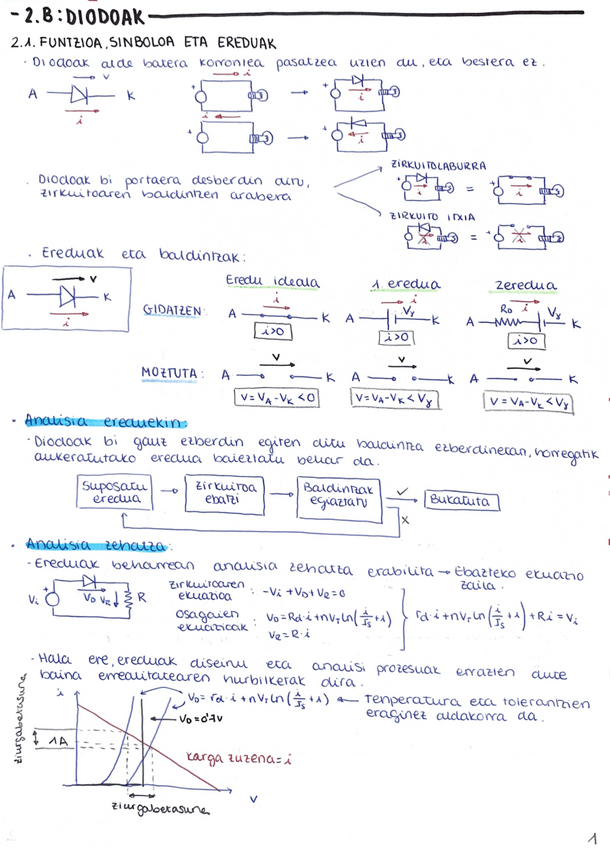 - 2.B: DIODOAK
2.1. FUNTZIOA, SINBOLOA ETA EREDUAK
· Diodoak alde batera korrontea pasatzea uzten du, eta bestera ez.
v
A K
i
i
i
i
i
· Diodoak bi portaera desberdin ditu,
zirkuitoaren baldintzen arabera
ZIRKUITOLABURRA
i = i
ZIRKUITO ITXIA
i = i
· Ereduak eta baldintzak:
v
A K
i
Eredu ideala 1. eredua 2. eredua
GIDATZEN: A i K A i Vγ K A Ro i Vγ K
i>0 i>0 i>0
MOZTUTA: A v K A v K A v K
V = VA - VK < 0 V = VA - VK < Vγ V = VA - VK < Vγ
· Analisia ereduekin:
· Diodoak bi gauz ezberdin egiten ditu baldintza ezberdinetan, horregatik
aukeratutako eredua baieztatu behar da.
Suposatu eredua → Zirkuitoa ebatzi → Baldintzak egiaztatu ✓ Bukatuta
x
· Analisia zehatza:
- Ereduak beharrean analisia zehatza erabilita → Ebazteko ekuazio
zaila.
Vi VD VR R
zirkuitoaren ekuazioa : -Vi + VD + VR = 0
Osagaien ekuazioak : VD = Rd·i + nVT ln(i/Is + 1)
VR = R·i
rd·i + nVT ln(i/Is + 1) + Ri = Vi
- Hala ere, ereduak diseinu eta analisi prozesuak errazten dute
baina errealitatearen hurbilketak dira.
ziurgabetasuna
i
VD = rd·i + nVT ln(i/Is + 1) ← Tenperatura eta tolerantzien
eraginez aldakorra da.
VD = 0'7V
1A
karga zuzena = i
v
ziurgabetasuna
1